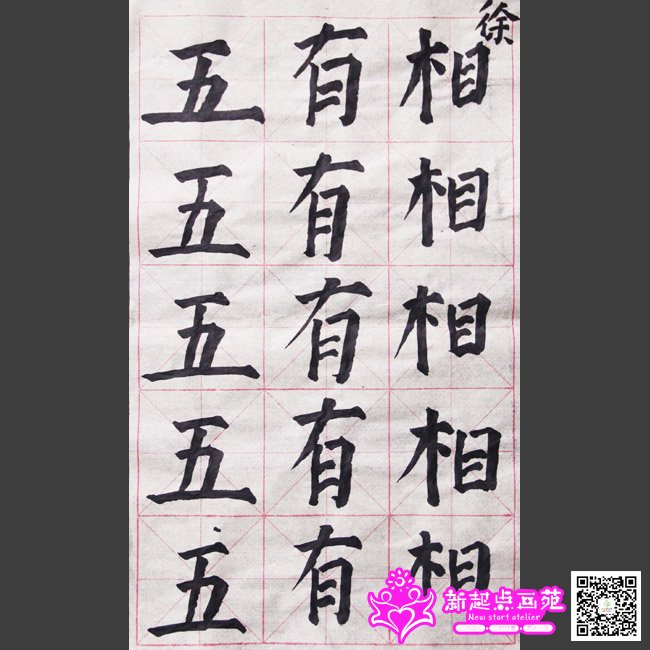 徐
相相相相相
有有有有有
五五五五五
新起点画苑
New start atelier